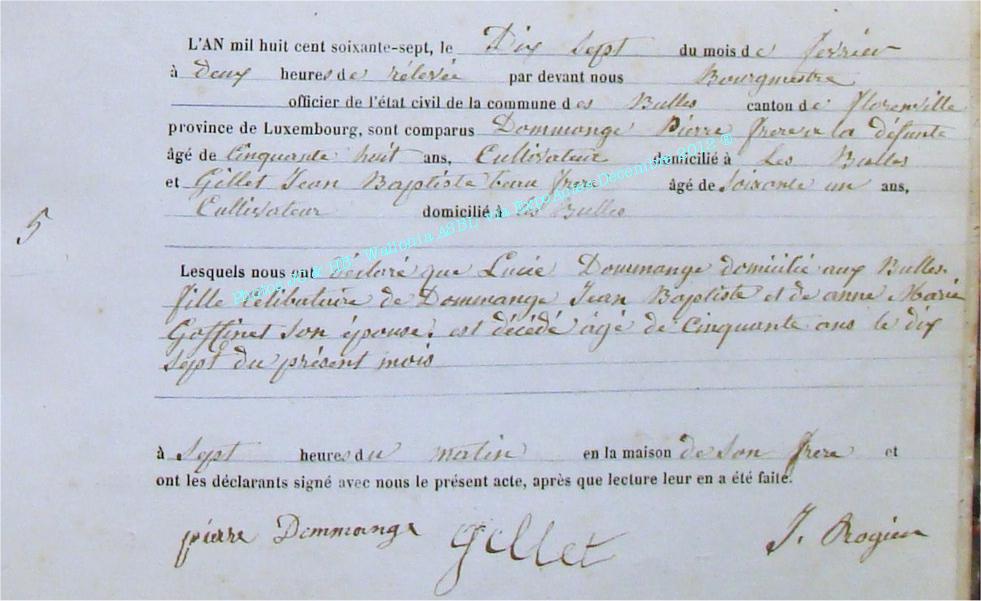 L'AN mil huit cent soixante-sept, le Dix sept du mois de fevrier
à deux heures de rélevée par devant nous Bourgmestre
officier de l'état civil de la commune des Bulles canton de florenville
province de Luxembourg, sont comparus Dommange Pierre frere a la défunte
âgé de Cinquante huit ans, Cultivateur domicilié à Les Bulles
et Gillet Jean Baptiste beau frere âgé de Soixante un ans,
Cultivateur domicilié à les Bulles
5
Lesquels nous ont déclaré que Lucie Dommange domicilié aux Bulles.
fille célibataire de Dommange Jean Baptiste et de anne Marie
Goffinet son épouse. est décédé âgé de Cinquante ans le dix
sept du présent mois
à Sept heures du matin en la maison de son frere et
ont les déclarants signé avec nous le présent acte, après que lecture leur en a été faite.
pierre Dommange Gillet J. Rogier
Wallonia ASBL via ExpoActes Decembre 2012 ®